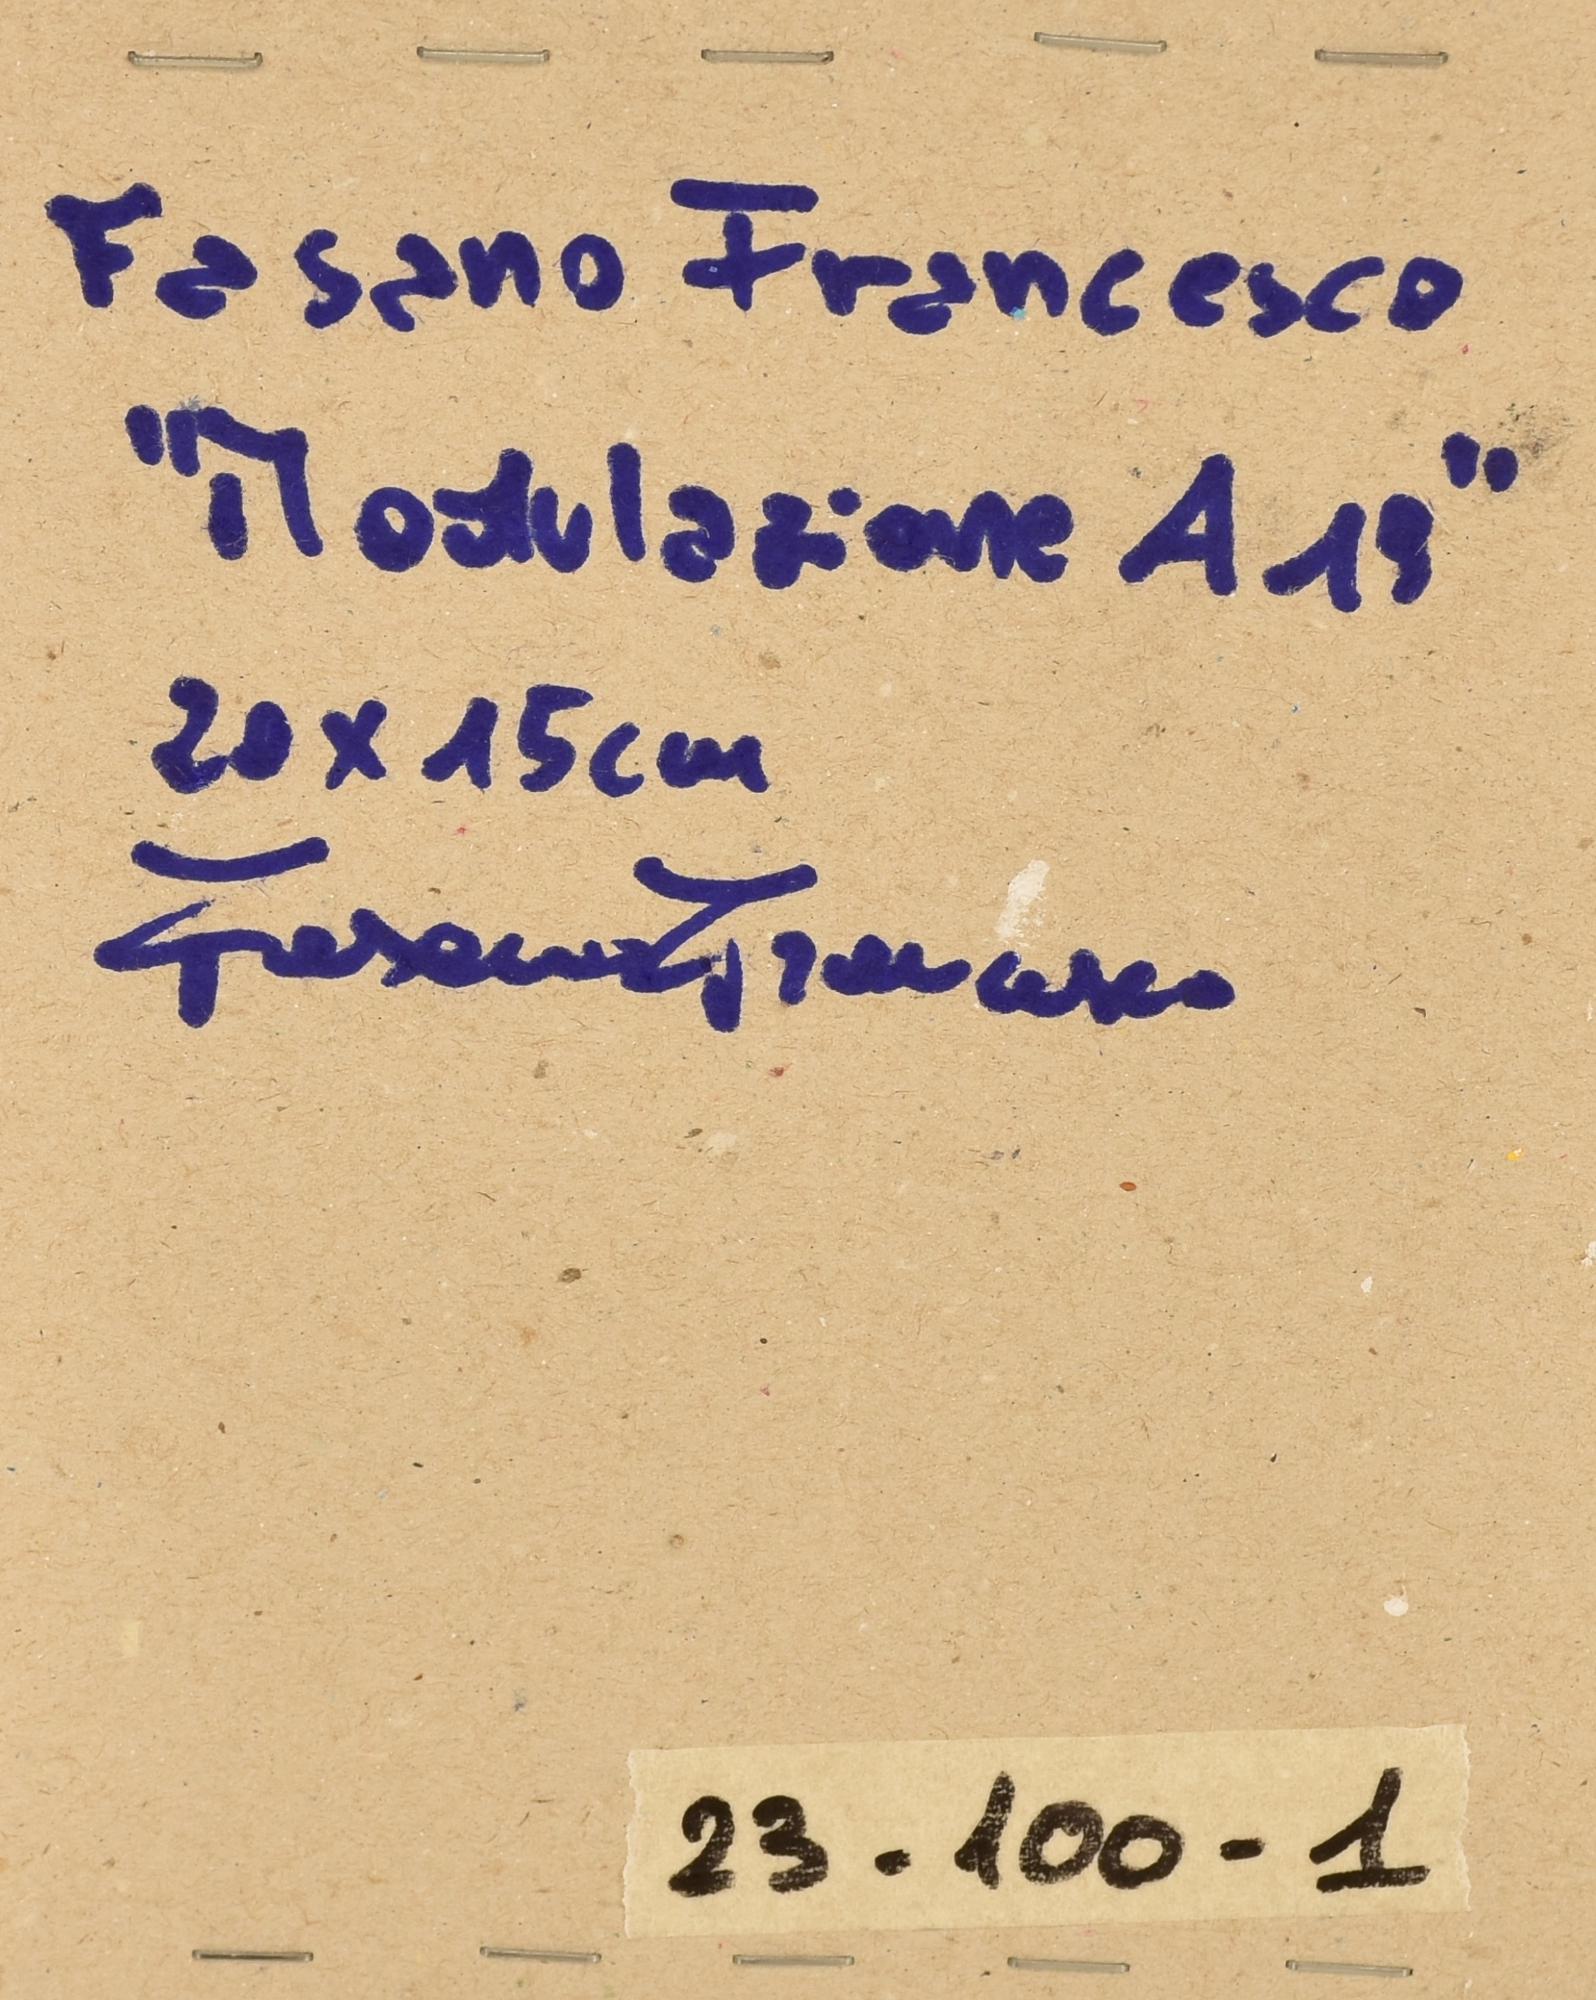 Fasano Francesco
"Modulazione A 19"
20 x 15 cm
Fasano Francesco
23 - 100 - 1